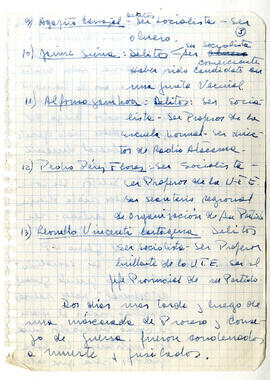 Delitos
9) Agapito Carvajal - Ser socialista - Ser
obrero.
③
10) Jaime Sierra: Delitos - Ser socialista
Ser comerciante
haber sido candidato en
una junta Vecinal
11) Alfonso Gamboa: Delitos: Ser Socia-
lista - Ser Profesor de la
Escuela Normal - Ser direc-
tor de Radio Atacama -
12) Pedro Pérez Flores - Ser Socialista
Ser Profesor de la U.T.E
Ser secretario regional
de Organización de su Partido
13) Leonello Vincenti Cartagena Delitos
Ser socialista - Ser Profesor
brillante de la U.T.E. Ser el
jefe Provincial de su Partido.
Dos días mas tarde y luego de
una máscarada de Proceso y Conse-
jo de Guerra fueron condenados
a muerte y fusilados.